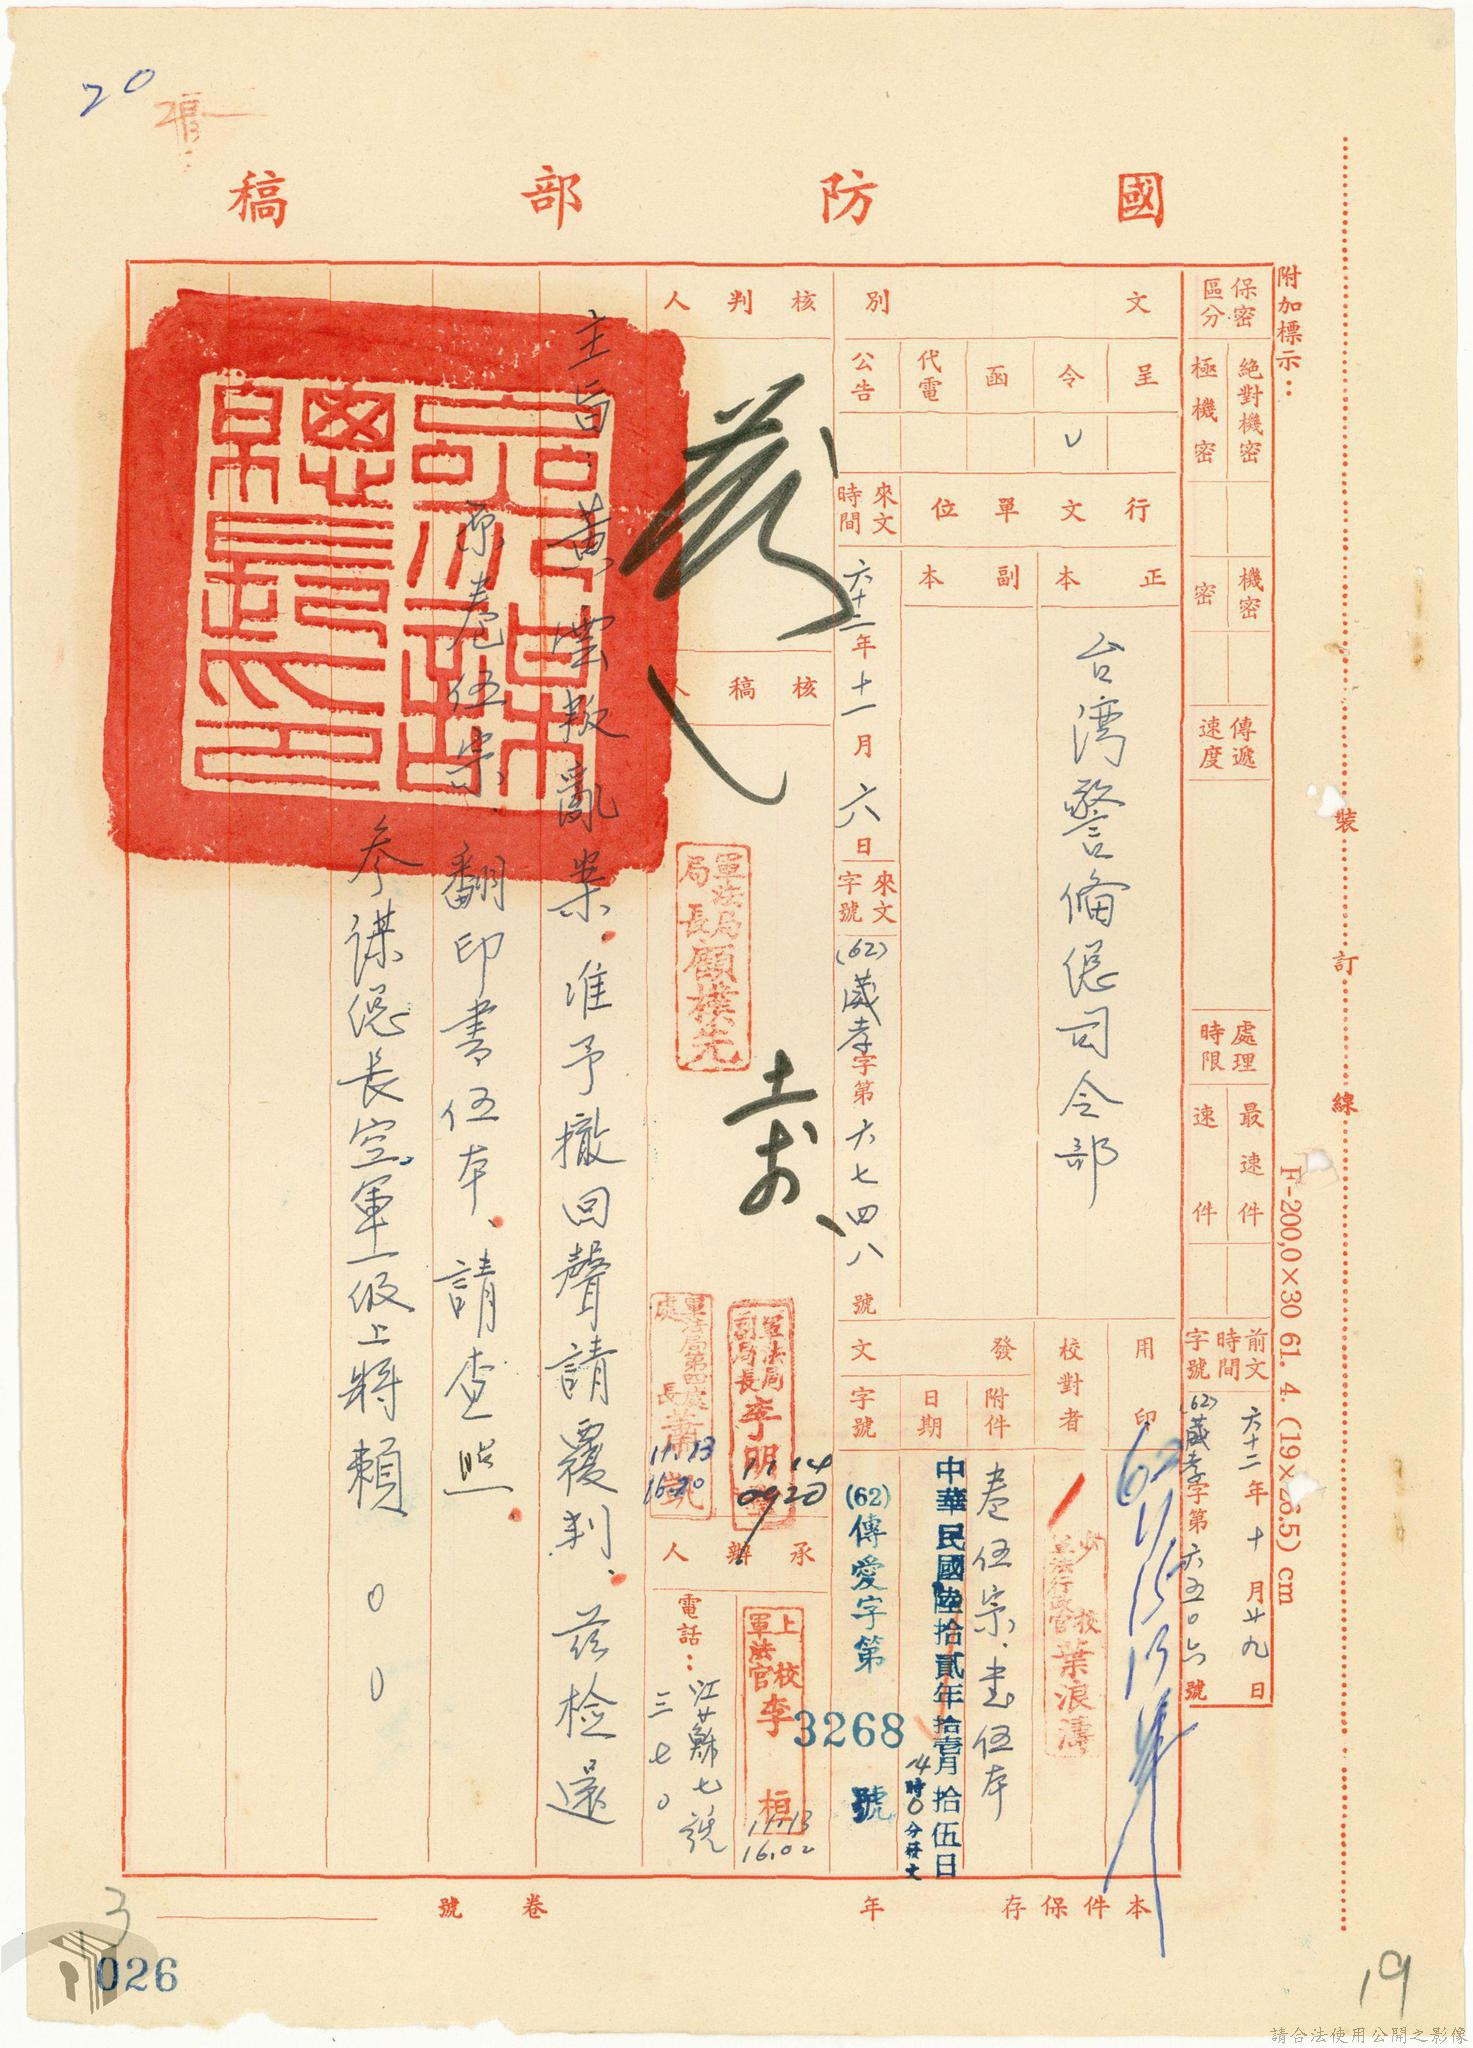 20
國防部稿
附加標示：
F-200,0×30 61. 4. (19×26.5) cm
裝
訂
線
保密區分
絕對機密
極機密
機密
密
傳遞速度
處理時限
最速件
速件
前文時間字號
六十二年十月廿九日
(62)蔵孝字第六五0六號
文別
呈
令
函
代電
公告
∨
行文單位
正本
副本
台灣警偹總司令部
來文時間
六十二年十一月六日
來文字號
(62)蔵孝字第六七四八號
用印
校對者
少校
軍法行政官
葉浪濤
發文
附件
卷伍宗、書伍本
日期
中華民國陸拾貳年拾壹月拾伍日
14時0分發文
字號
(62)傳愛字第3268號
核判人
核稿人
軍法局
局長
顧樸先
軍法局
副局長
李明
11.14
0920
軍法局第四處
處長
蕭凱
11.13
16.20
承辦人
上校
軍法官
李桓
11.13
16.02
電話：
江蘇七號
三七0
主旨：黃雲叛亂案、准予撤回聲請覆判、茲檢還
原卷伍宗、翻印書伍本、請查照。
參謀總長空軍一級上將賴00
本件保存年
卷號
3
026
19
請合法使用公開之影像